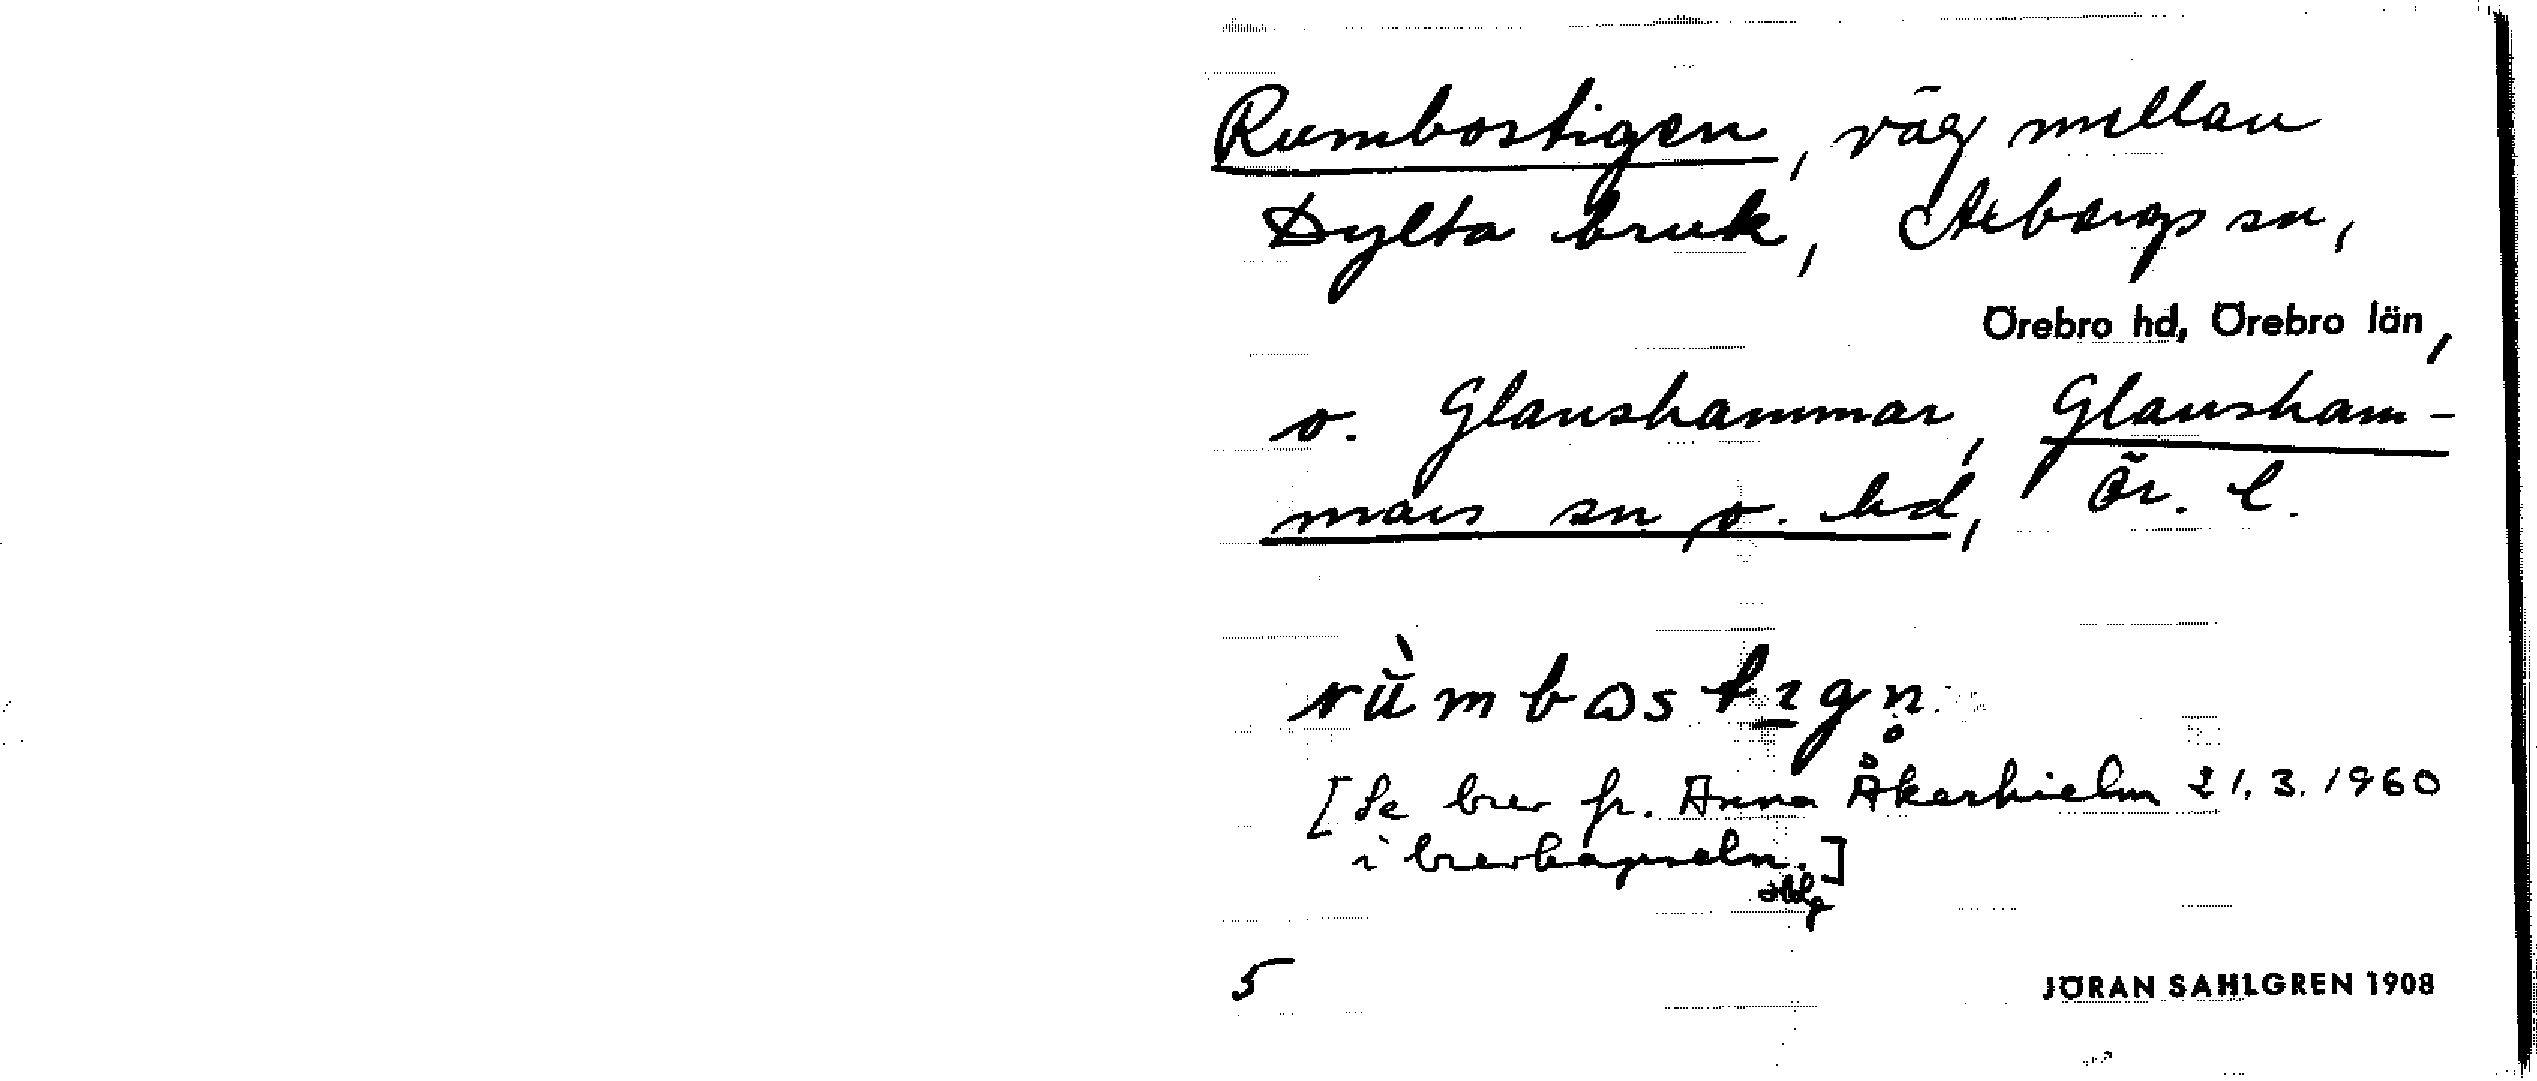 Rumbostigen, väg mellan
Dylta bruk, Axbergs sn,
Örebro hd, Örebro län,
o. Glanshammar, Glansham-
mars sn o. hd, Ör. l.
rùmbostıgn̥
[Se brev fr. Anna Åkerhielm 21.3.1960
i brevkapseln.]
5
JÖRAN SAHLGREN 1908